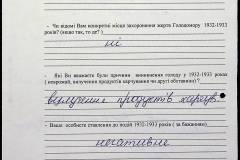 - Чи відомі Вам конкретні місця захоронення жертв Голодомору 1932-1933
років? (якщо так, то де? )
ні
- Які Ви вважаєте були причини виникнення голоду у 1932-1933 роках
( неврожай, вилучення продуктів харчування чи другі обставини)?
вилучення продуктів харчув.
- Ваше особисте ставлення до подій 1932-1933 років ( за бажанням)
негативне